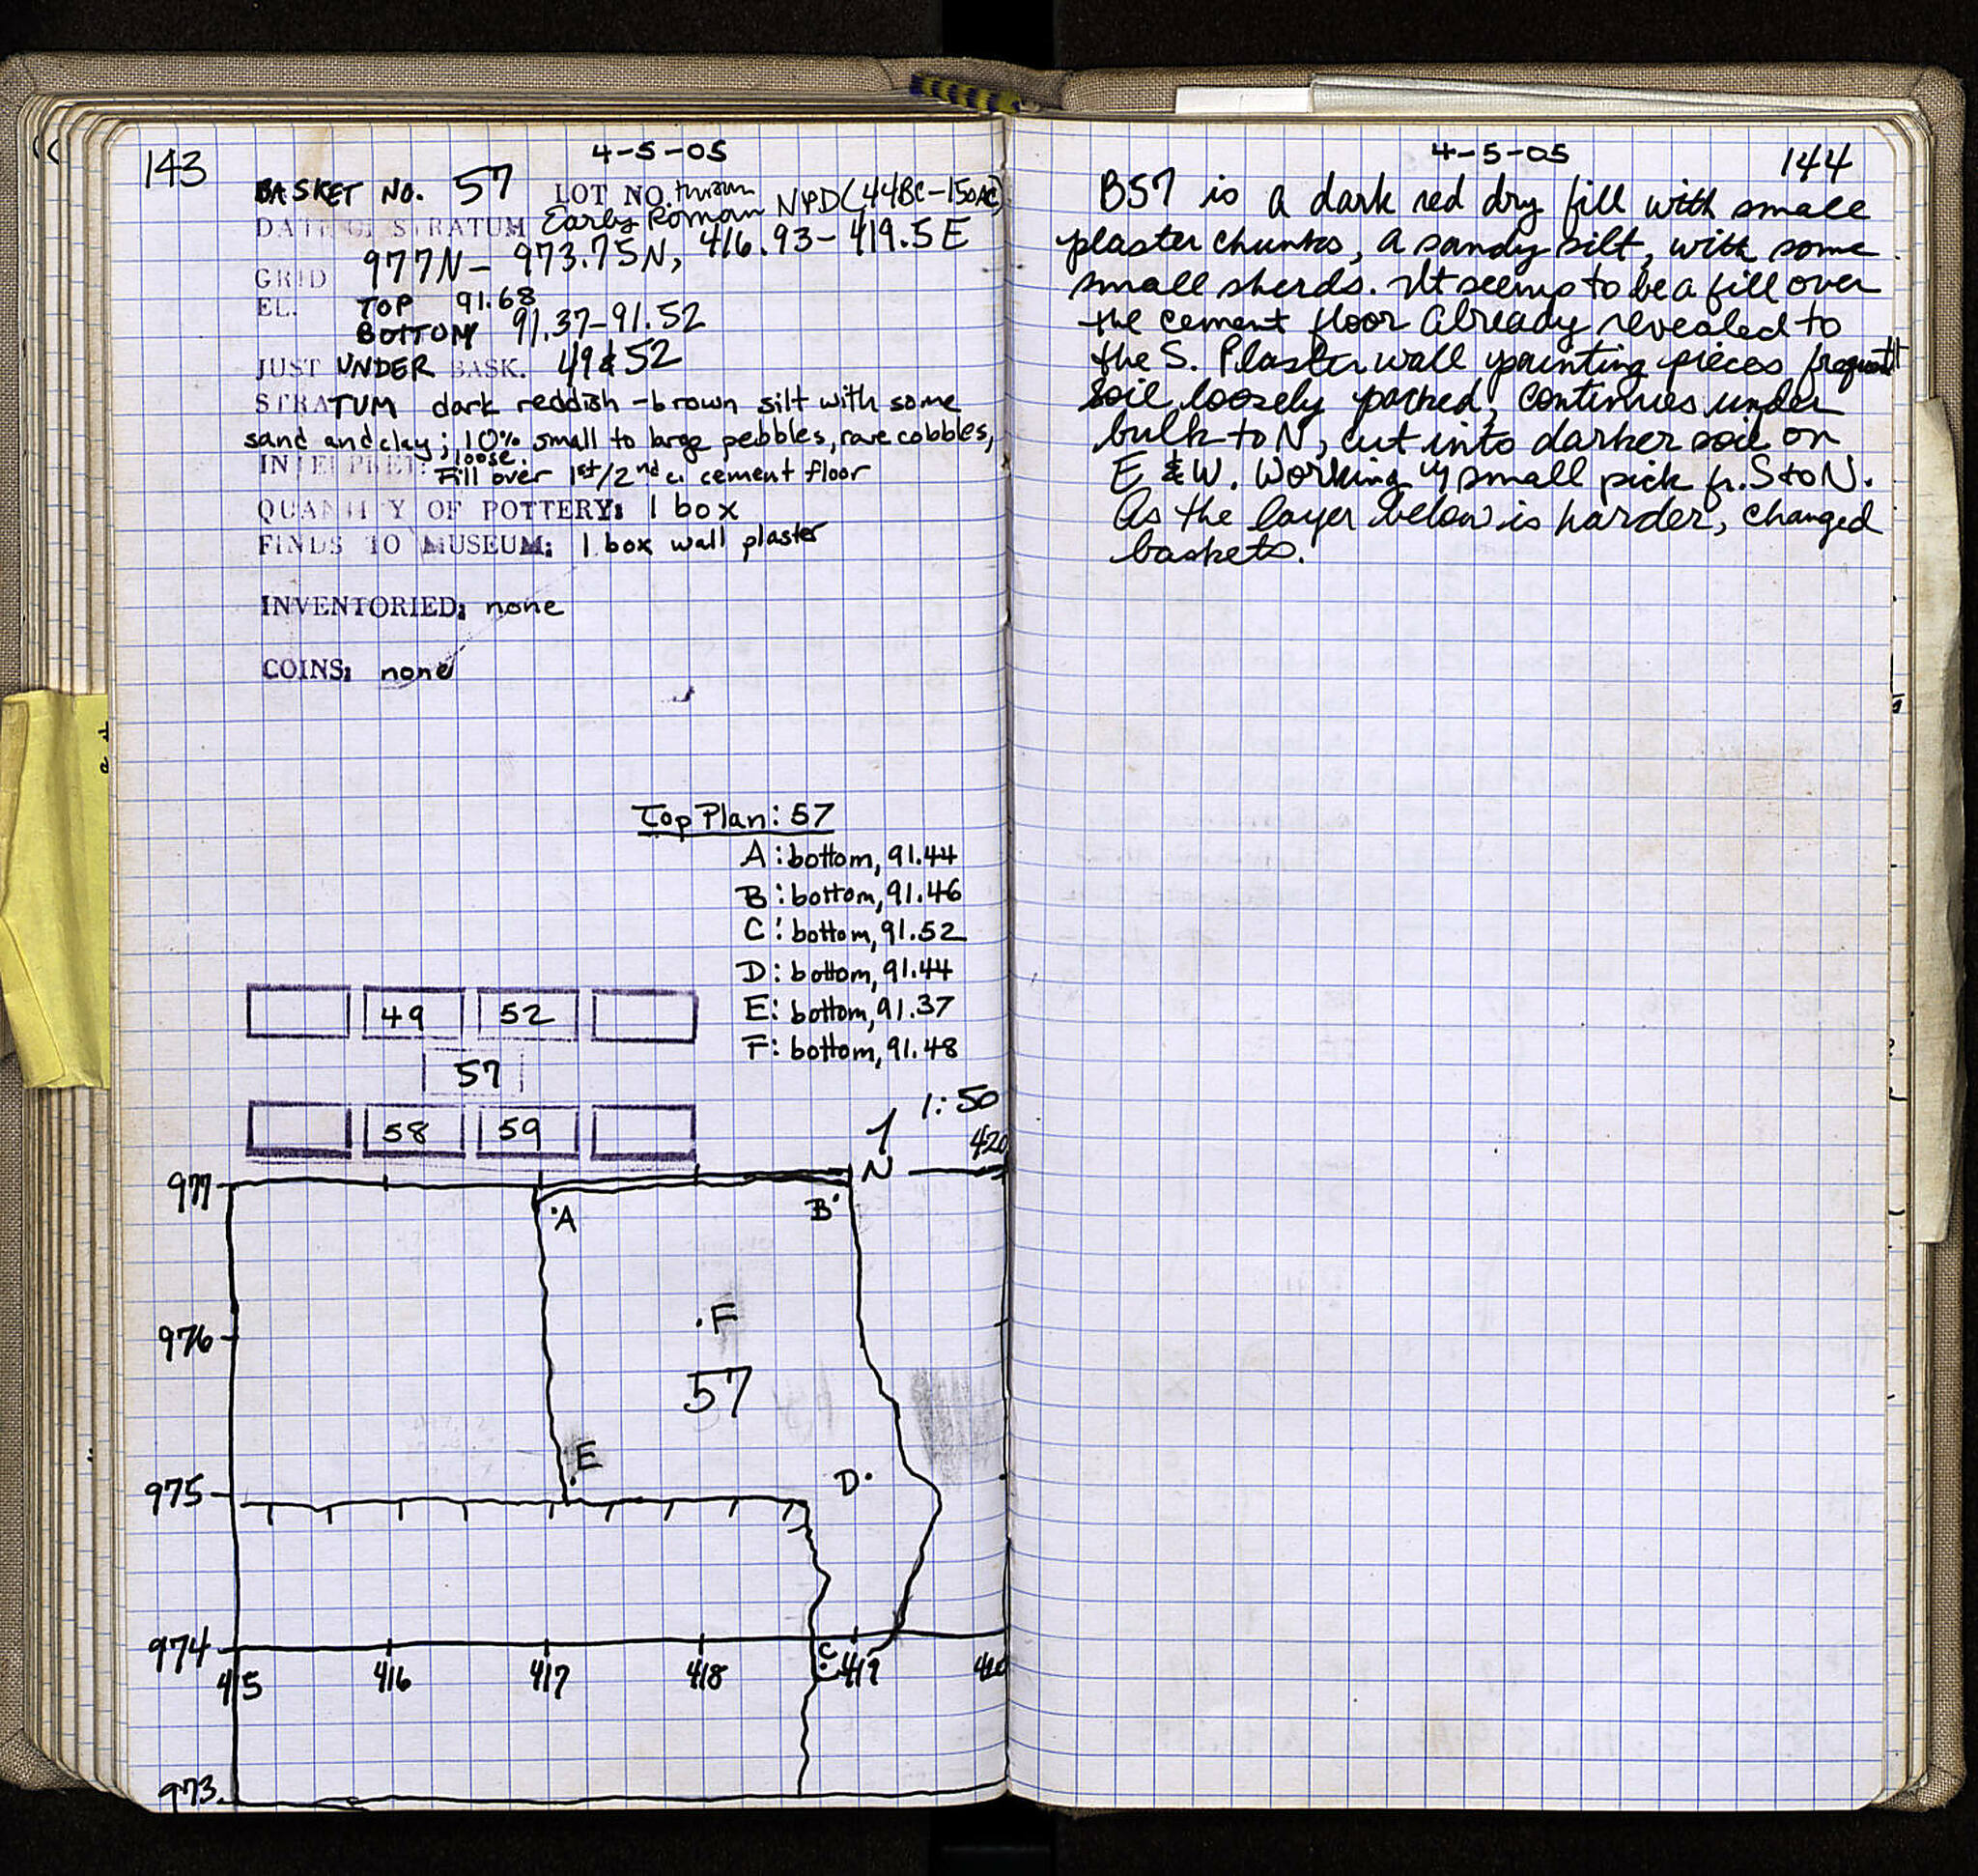 143
4-5-05
BASKET NO. 57 LOT NO. thrown
DATE OF STRATUM Early Roman NPD (44BC-150AC)
GRID 977N- 973.75N, 416.93-419.5E
EL. TOP 91.68
BOTTOM 91.37-91.52
JUST UNDER BASK. 49 & 52
STRATUM dark reddish-brown silt with some
sand and clay; 10% small to large pebbles, rare cobbles,
loose.
INTERPRET: Fill over 1st/2nd c. cement floor
QUANTITY OF POTTERY: 1 box
FINDS TO MUSEUM: 1 box wall plaster
INVENTORIED: none
COINS: none
Top Plan: 57
A: bottom, 91.44
B: bottom, 91.46
C: bottom, 91.52
D: bottom, 91.44
E: bottom, 91.37
F: bottom, 91.48
49 52
57
58 59
1:50
N
420
977
A B
F
976
57
E
D
975
974
C
415 416 417 418 419 420
973
4-5-05
144
B57 is a dark red dry fill with small
plaster chunks, a sandy silt, with some
small sherds. It seems to be a fill over
the cement floor already revealed to
the S. Plaster wall painting pieces frequent
Soil loosely packed, continues under
bulk to N, cut into darker soil on
E & W. Working w/ small pick fr. S to N.
As the layer below is harder, changed
baskets.